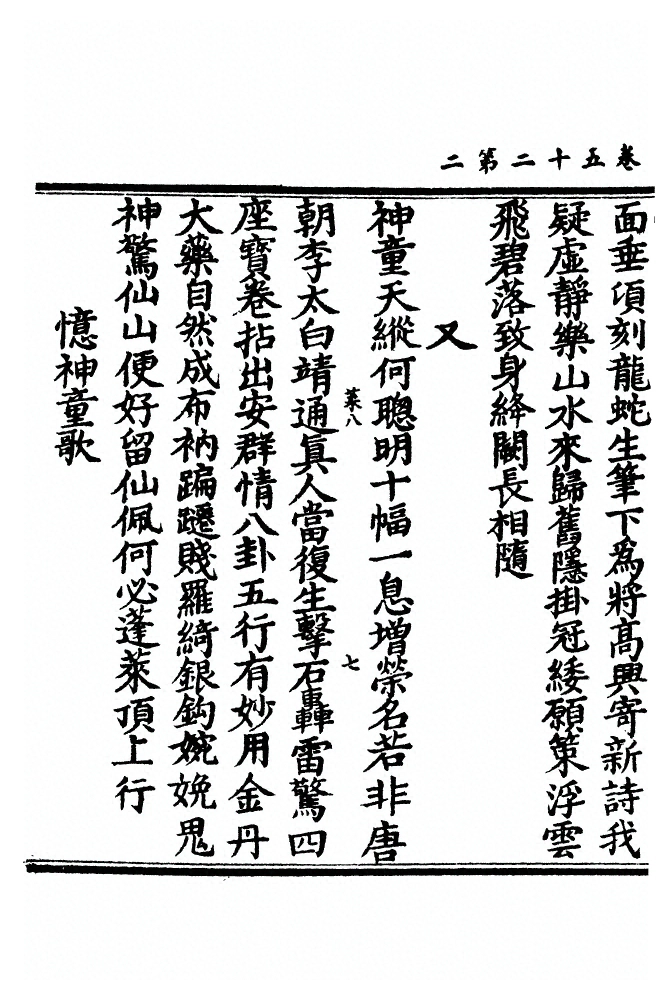 卷五十二第二
面垂項刻龍蛇生筆下爲將高興寄新詩我
疑虛靜樂山水來歸舊隱掛冠緌願策浮雲
飛碧落致身絳闕長相隨
又
神童天縱何聰明十幅一息增榮名若非唐
菜八
七
朝李太白靖通眞人當復生擊石轟雷驚四
座寶卷拈出安群情八卦五行有妙用金丹
大藥自然成布衲蹁躚賤羅綺銀鈎婉娩鬼
神驚仙山便好留仙佩何必蓬萊頂上行
憶神童歌